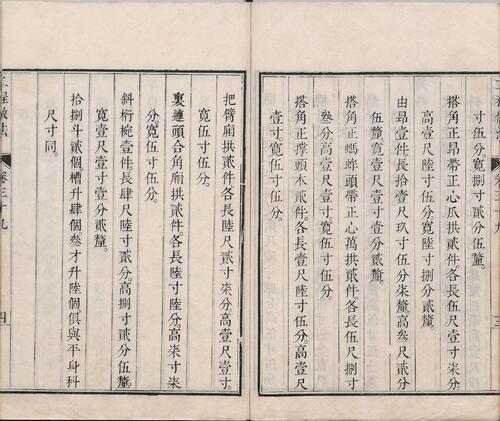 寸伍分寬捌寸貳分伍釐
搭角正昂帶正心瓜拱貳件各長伍尺壹寸柒分
高壹尺陸寸伍分寬陸寸捌分貳釐
由昂壹件長拾壹尺玖寸伍分柒釐高叁尺貳分
伍釐寬壹尺壹寸壹分貳釐
搭角正螞蚱頭帶正心萬拱貳件各長伍尺捌寸
叁分高壹尺寬伍寸伍分
搭角正撑頭木貳件各長壹尺陸寸伍分高壹尺
壹寸寬伍寸伍分
把臂廂拱貳件各長陸尺貳寸柒分高壹尺壹寸
寬伍寸伍分
裏蓮頭合角廂拱貳件各長陸寸陸分高柒寸柒
分寬伍寸伍分
斜桁椀壹件長肆尺陸寸貳分高捌寸貳分伍釐
寬壹尺壹寸壹分貳釐
拾捌斗貳個槽升肆個叁才升陸個俱與平身科
尺寸同
工程做法
卷三十九
四